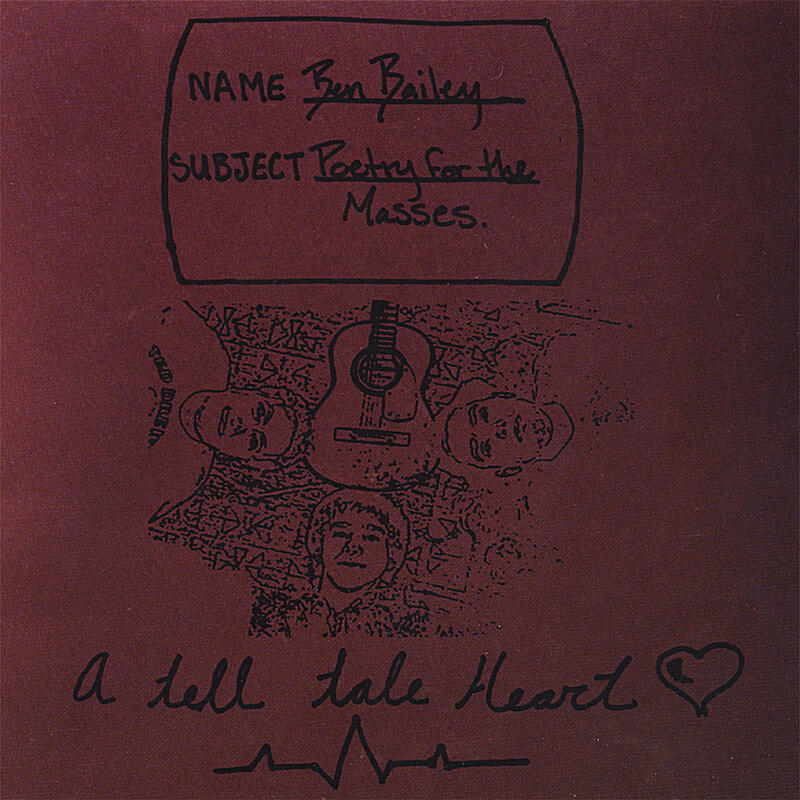 NAME Ben Bailey
SUBJECT Poetry for the
Masses.
A tell tale Heart